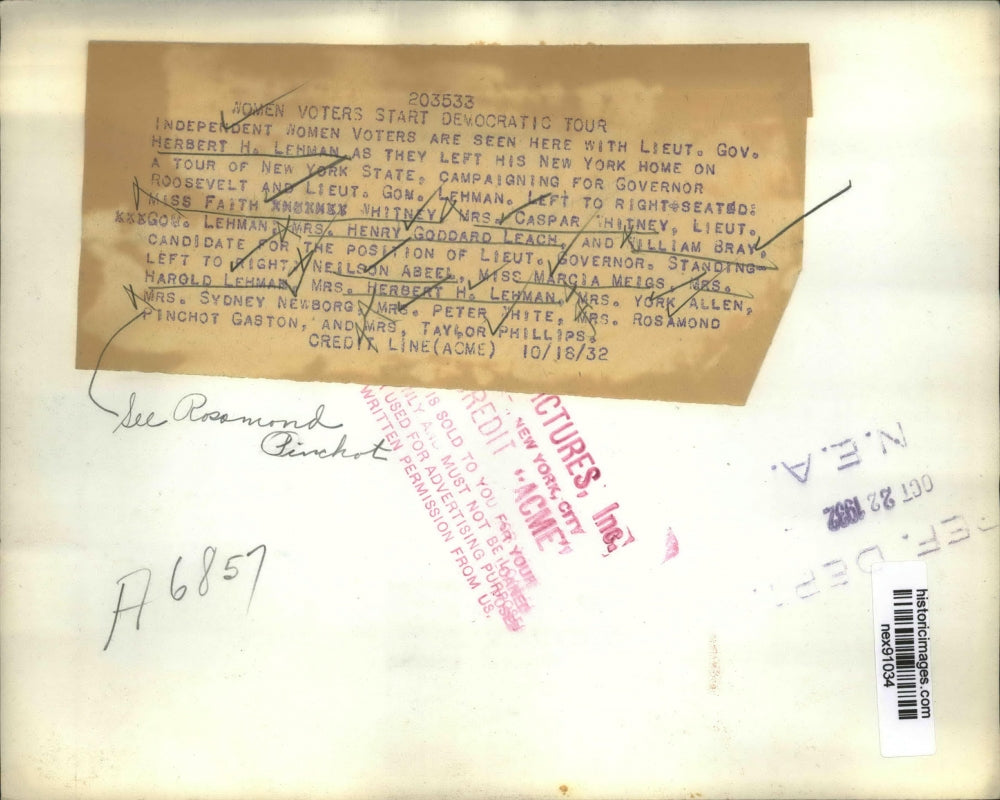 203533
WOMEN VOTERS START DEMOCRATIC TOUR
INDEPENDENT WOMEN VOTERS ARE SEEN HERE WITH LIEUT. GOV.
HERBERT H. LEHMAN AS THEY LEFT HIS NEW YORK HOME ON
A TOUR OF NEW YORK STATE, CAMPAIGNING FOR GOVERNOR
ROOSEVELT AND LIEUT. GOM. LEHMAN. LEFT TO RIGHT-SEATED:
MISS FAITH WHITNEY, MRS. CASPAR WHITNEY, LIEUT.
XXXGOV. LEHMAN, MRS. HENRY GODDARD LEACH, AND WILLIAM BRAY,
CANDIDATE FOR THE POSITION OF LIEUT. GOVERNOR. STANDING-
LEFT TO RIGHT, NEILSON ABEEL, MISS MARCIA MEIGS, MRS.
HAROLD LEHMAN, MRS. HERBERT H. LEHMAN, MRS. YORK ALLEN,
MRS. SYDNEY NEWBORG, MRS. PETER WHITE, MRS. ROSAMOND
PINCHOT GASTON, AND MRS, TAYLOR PHILLIPS.
CREDIT LINE(ACME) 10/18/32
See Rosamond
Pinchot
A6857
ICTURES, Inc.
NEW YORK, CITY
REDIT "ACME"
IS SOLD TO YOU FOR YOUR
NLY AND MUST NOT BE LOANED
USED FOR ADVERTISING PURPOSES
WRITTEN PERMISSION FROM US.
N.E.A.
OCT 22 1932
REF. DEPT.
historicimages.com
nex91034